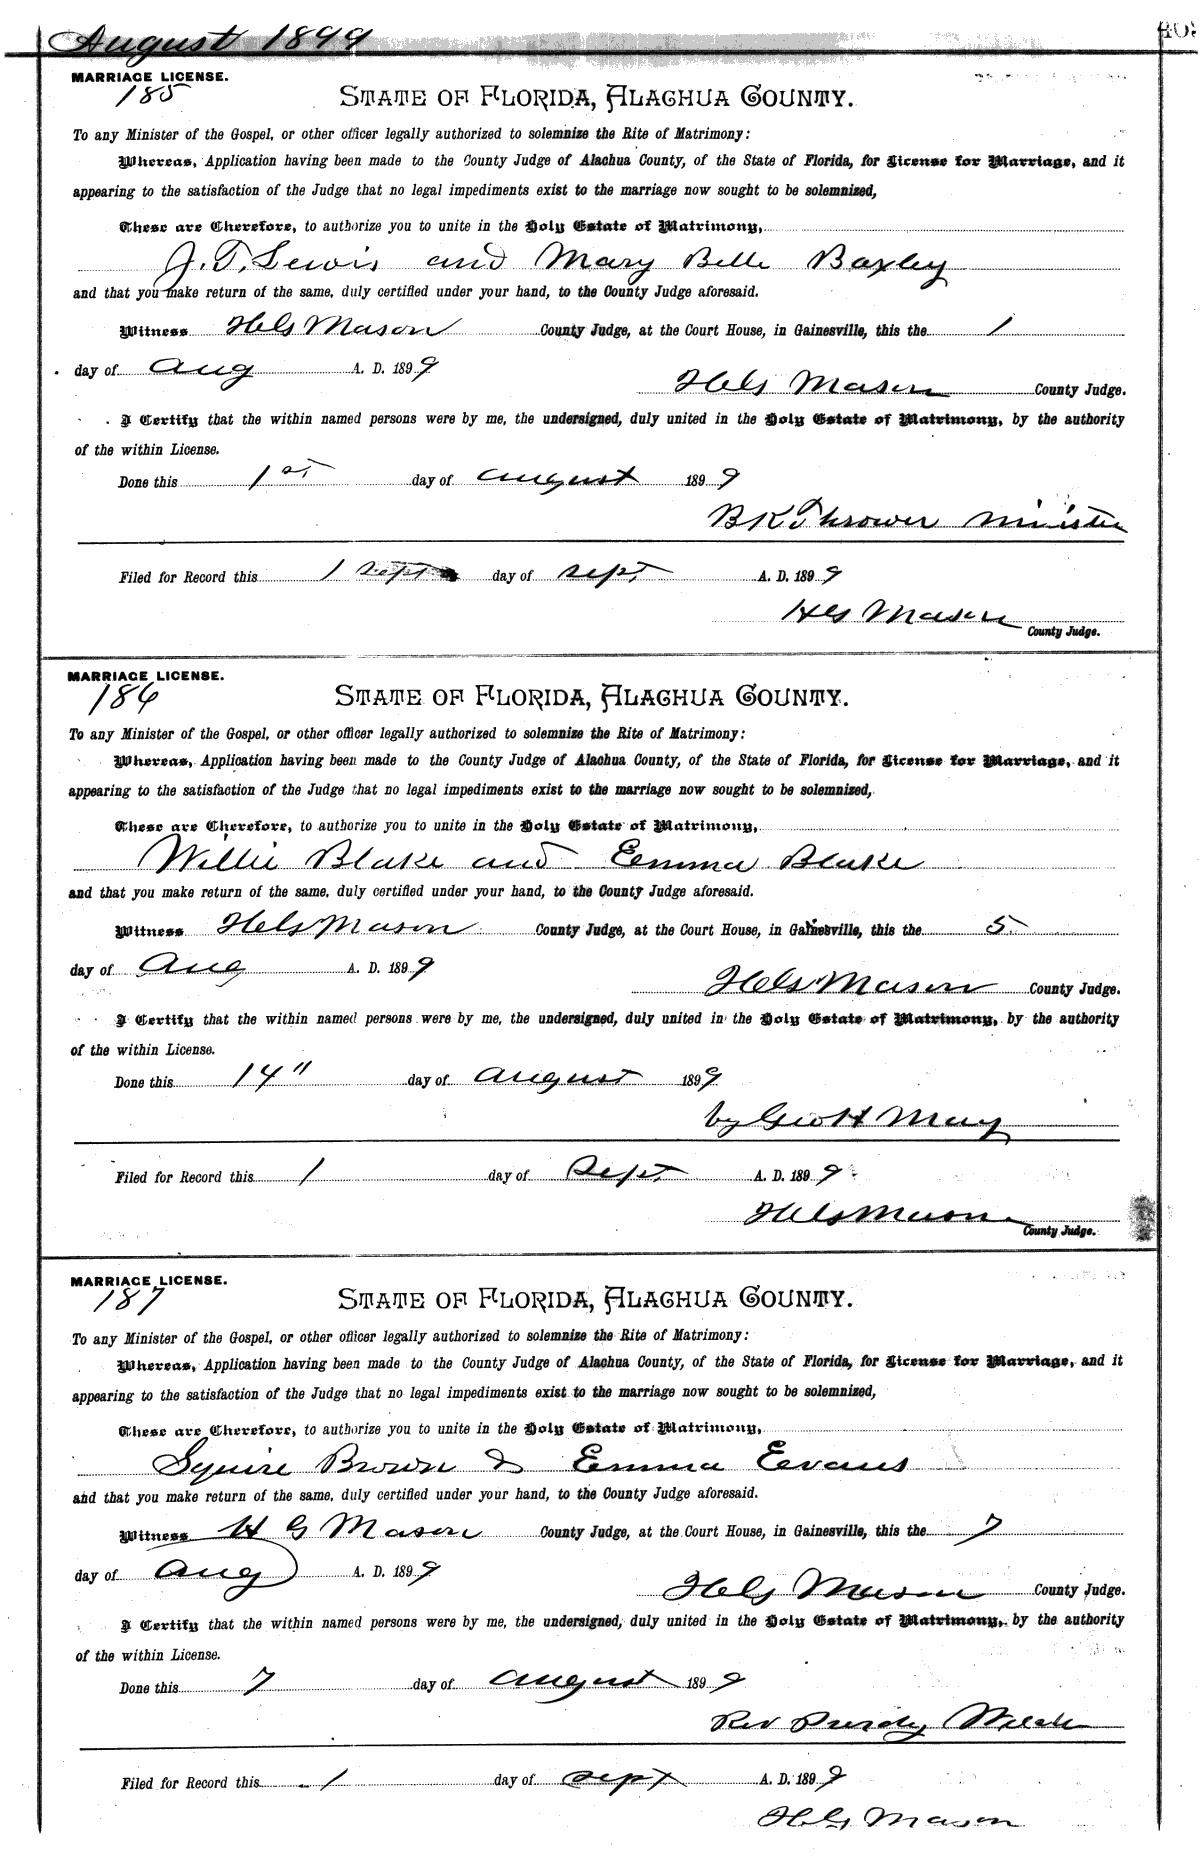 August 1899
MARRIAGE LICENSE.
185
STATE OF FLORIDA, ALACHUA COUNTY.
To any Minister of the Gospel, or other officer legally authorized to solemnize the Rite of Matrimony:
Whereas, Application having been made to the County Judge of Alachua County, of the State of Florida, for License for Marriage, and it
appearing to the satisfaction of the Judge that no legal impediments exist to the marriage now sought to be solemnized,
These are Therefore, to authorize you to unite in the Holy Estate of Matrimony,
J. T. Lewis and Mary Belle Baxley
and that you make return of the same, duly certified under your hand, to the County Judge aforesaid.
Witness H G Mason County Judge, at the Court House, in Gainesville, this the 1
day of Aug A. D. 1899
H G Mason County Judge.
I Certify that the within named persons were by me, the undersigned, duly united in the Holy Estate of Matrimony, by the authority
of the within License.
Done this 1st day of August 1899
B K Thrower Minister
Filed for Record this 1 Sept day of Sept A. D. 1899
H G Mason
County Judge.
MARRIAGE LICENSE.
186
STATE OF FLORIDA, ALACHUA COUNTY.
To any Minister of the Gospel, or other officer legally authorized to solemnize the Rite of Matrimony:
Whereas, Application having been made to the County Judge of Alachua County, of the State of Florida, for License for Marriage, and it
appearing to the satisfaction of the Judge that no legal impediments exist to the marriage now sought to be solemnized,
These are Therefore, to authorize you to unite in the Holy Estate of Matrimony,
Willie Blake and Emma Blake
and that you make return of the same, duly certified under your hand, to the County Judge aforesaid.
Witness H G Mason County Judge, at the Court House, in Gainesville, this the 5
day of Aug A. D. 1899
H G Mason County Judge.
I Certify that the within named persons were by me, the undersigned, duly united in the Holy Estate of Matrimony, by the authority
of the within License.
Done this 14" day of August 1899
by Geo H May
Filed for Record this 1 day of Sept A. D. 1899
H G Mason
County Judge.
MARRIAGE LICENSE.
187
STATE OF FLORIDA, ALACHUA COUNTY.
To any Minister of the Gospel, or other officer legally authorized to solemnize the Rite of Matrimony:
Whereas, Application having been made to the County Judge of Alachua County, of the State of Florida, for License for Marriage, and it
appearing to the satisfaction of the Judge that no legal impediments exist to the marriage now sought to be solemnized,
These are Therefore, to authorize you to unite in the Holy Estate of Matrimony,
Squire Brown & Emma Eevans
and that you make return of the same, duly certified under your hand, to the County Judge aforesaid.
Witness H G Mason County Judge, at the Court House, in Gainesville, this the 7
day of Aug A. D. 1899
H G Mason County Judge.
I Certify that the within named persons were by me, the undersigned, duly united in the Holy Estate of Matrimony, by the authority
of the within License.
Done this 7 day of August 1899
Rev Purdy Welch
Filed for Record this 1 day of Sept A. D. 1899
H G Mason